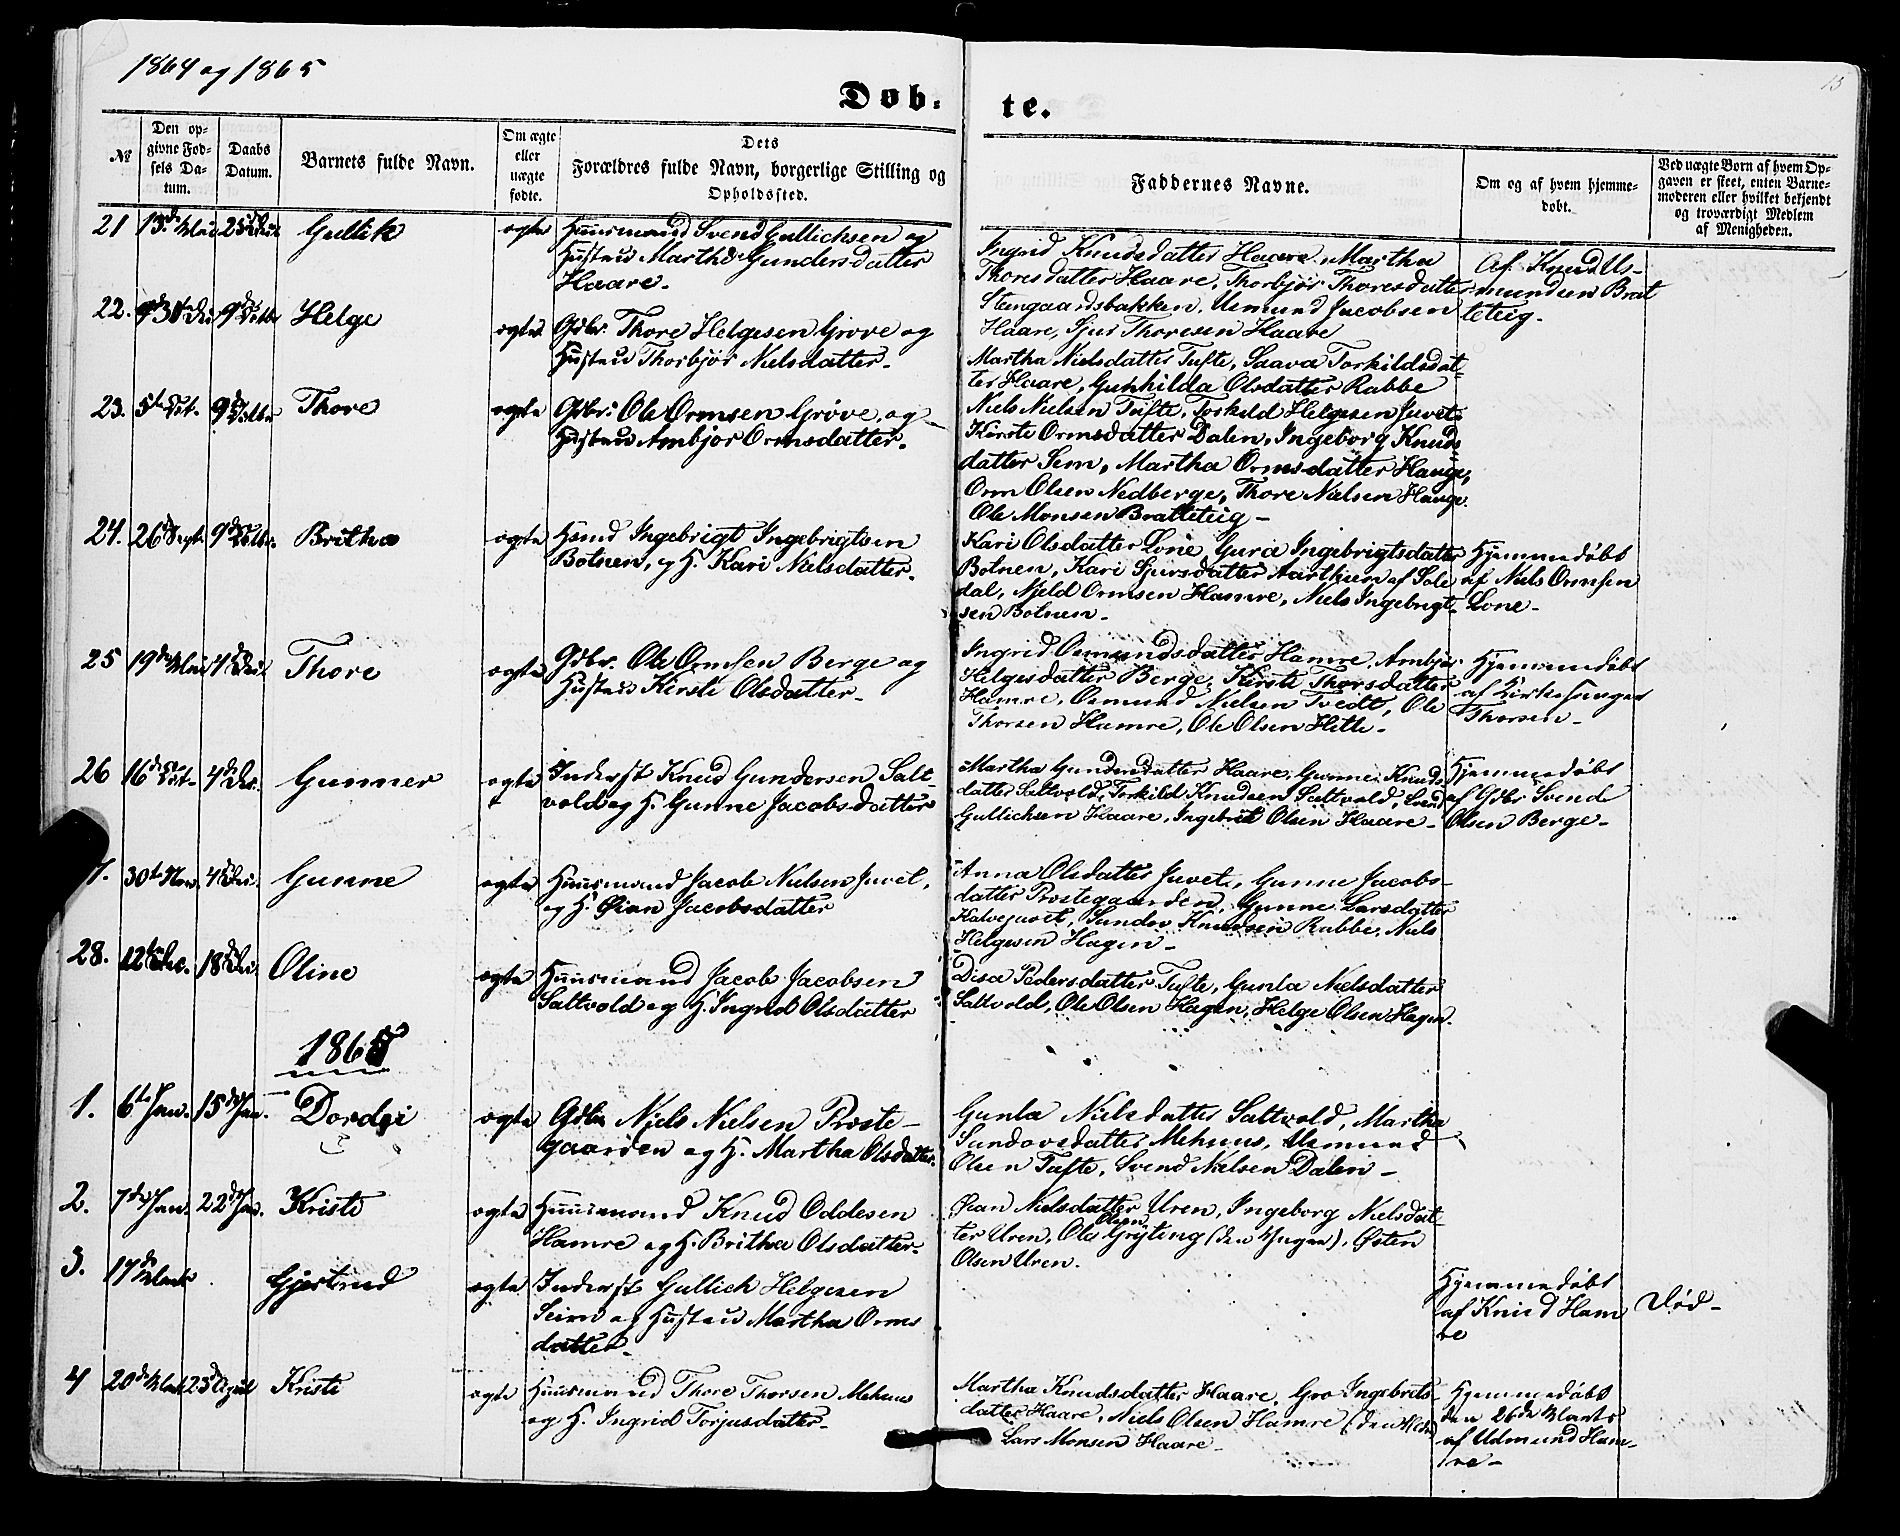 1864 og 1865
13
Døb- te.
№
Den op-
givne Fød-
sels Da-
tum.
Daabs
Datum.
Barnets fulde Navn.
Om ægte
eller
uægte
fødte.
Dets
Forældres fulde Navn, borgerlige Stilling og
Opholdssted.
Faddernes Navne.
Om og af hvem hjemme-
døbt.
Ved uægte Børn af hvem Op-
gaven er skeet, enten Barne-
moderen eller hvilket bekjendt
og troværdigt Medlem
af Menigheden.
21 Gullik ægte Huusmand Svend Gullichsen og
Hustru Martha Gundersdatter
Haare.
Ingrid Knudsdatter Haare, Martha
Thoresdatter Haare, Thorbjør Thoresdatter
Steengaardsbakken, Usmund Jacobsen
Haare, Sjur Thoresen Haare
Af Knud Us-
mundsen Brat
teteig.
22. 9d Octbr Helge ægte Gdbr. Thore Helgesen Grøve og
Hustru Thorbjør Nielsdatter.
Martha Nielsdatter Tufte, Saava Torkildsdat-
ter Haare, Gunhilda Olsdatter Rabbe
Niels Nielsen Tufte, Torkild Helgesen Juvet
23. 5te Oct. 9d Octbr Thore ægte Gdbr. Ole Ormsen Grøve, og
Hustru Ambjør Ormsdatter.
Kirste Ormsdatter Dalen, Ingeborg Knuds
datter Sem, Martha Ormsdatter Hauge,
Orm Olsen Nedberge, Thore Nielsen Hauge
Ole Monsen Bratteteig -
24. 26d Sept. 9d Octbr. Britha ægte Hsmd Ingebrigt Ingebrigtsen
Botnen, og H. Kari Nielsdatter.
Kari Olsdatter Lone, Gura Ingebrigtsdatter
Botnen, Kari Sjursdatter Aarthun af Sole
dal, Kjeld Ormsen Hamre, Niels Ingebrigt-
sen Botnen.
Hjemmedøbt
af Niels Ormsen
Lone -
25 19d Thore ægte Gdbr. Ole Ormsen Berge og
Hustru Kirsti Olsdatter -
Ingrid Osmundsdatter Hamre, Ambjør
Helgesdatter Berge, Kirste Thorsdatter
Hamre, Osmund Nielsen Tvedt, Ole
Thorsen Hamre, Ole Olsen Helle -
Hjemmedøbt
af Kirkesanger
Thorsen -
26 16d Oct. 4d Dec. Gunner ægte Inderst Knud Gundersen Salt
vold og H. Gunne Jacobsdatter
Martha Gundersdatter Haare, Gunne Knuds
datter Saltvold, Torkild Knudsen Saltvold, Svend
Gullichsen Haare, Ingebrit Olsen Haare -
Hjemmedøbt
af Gdbr Svend
Olsen Berge -
7. 30te Nov. 4d Dec. Gunne ægte Huusmand Jacob Nielsen Juvet,
og H. Øian Jacobsdatter
Anna Olsdatter Juvet, Gunne Jacobs-
datter Prostegaarden, Gunne Larsdatter
Halvejuvet, Sandov Knudsen Rabbe, Niels
Helgesen Hagen -
28. 12te Dec. 18d Dec. Oline ægte Huusmand Jacob Jacobsen
Saltvold og H. Ingrid Olsdatter
Disa Pedersdatter Tufte, Gunla Nielsdatter
Saltvold, Ole Olsen Hagen, Helge Olsen Hagen.
1865
1. 6te Jan. 15d Jan. Dordei ægte Gdbr Niels Nielsen Proste-
gaarden og H. Martha Olsdatter.
Gunla Nielsdatter Saltvold, Martha
Sandovsdatter Mehuus, Usmund
Olsen Tufte, Svend Nielsen Dalen -
2. 7d Jan. 22d Jan. Kristi ægte Huusmand Knud Oddesen
Hamre og H. Britha Olsdatter.
Øian Nielsdatter Uren, Ingeborg Nielsdat-
ter Uren, Ole Olsen Gryting (den Yngre), Østen
Olsen Uren.
3. 17d Marts Gjertrud ægte Inderst Gullich Helgesen
Seim og Hustru Martha Orms
datter -
Hjemmedøbt
af Knud Ham
re
Død -
4 20d Marts 23d April Kristi ægte Huusmand Thore Thorsen Mehuus
og H. Ingrid Torjusdatter -
Martha Knudsdatter Haare, Gro Ingebrits-
datter Haare, Niels Olsen Hamre
Lars Monsen Haare -
Hjemmedøbt
den 26de Marts
af Udmund Ham-
re -